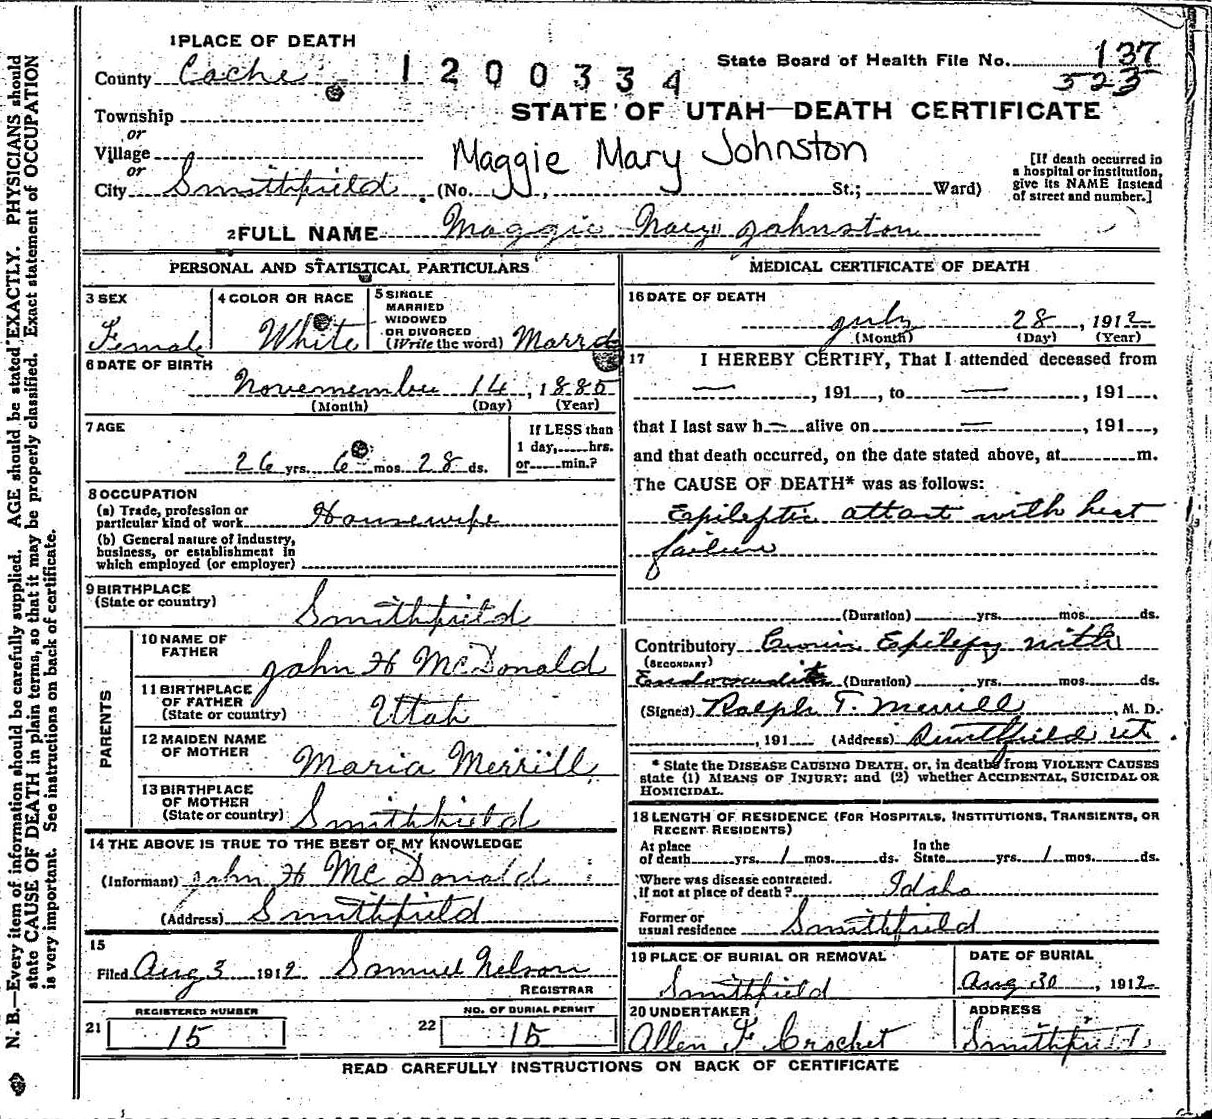 1 PLACE OF DEATH
County Cache
1200334
State Board of Health File No. 137
523
Township
or
Village
or
City Smithfield
STATE OF UTAH—DEATH CERTIFICATE
Maggie Mary Johnston
(No. , St.; Ward)
[If death occurred in
a hospital or institution,
give its NAME instead
of street and number.]
2 FULL NAME Maggie Mary Johnston
PERSONAL AND STATISTICAL PARTICULARS
3 SEX
Female
4 COLOR OR RACE
White
5 SINGLE
MARRIED
WIDOWED
OR DIVORCED
(Write the word) Marrd
6 DATE OF BIRTH
Novemember 14, 1885
(Month) (Day) (Year)
7 AGE
26 yrs. 6 mos. 28 ds.
If LESS than
1 day, hrs.
or min.?
8 OCCUPATION
(a) Trade, profession or
particular kind of work Housewife
(b) General nature of industry,
business, or establishment in
which employed (or employer)
9 BIRTHPLACE
(State or country) Smithfield
PARENTS
10 NAME OF
FATHER John H McDonald
11 BIRTHPLACE
OF FATHER
(State or country) Uttah
12 MAIDEN NAME
OF MOTHER Maria Merrill
13 BIRTHPLACE
OF MOTHER
(State or country) Smithfield
14 THE ABOVE IS TRUE TO THE BEST OF MY KNOWLEDGE
(Informant) John H McDonald
(Address) Smithfield
15
Filed Aug 3 1912 Samuel Nelson
REGISTRAR
REGISTERED NUMBER
21 15
NO. OF BURIAL PERMIT
22 15
MEDICAL CERTIFICATE OF DEATH
16 DATE OF DEATH
July 28, 1912
(Month) (Day) (Year)
17 I HEREBY CERTIFY, That I attended deceased from
—, 191 , to —, 191 .
that I last saw h— alive on —, 191 ,
and that death occurred, on the date stated above, at m.
The CAUSE OF DEATH* was as follows:
Epileptic attact with heat
failure
(Duration) yrs. mos. ds.
Contributory Epilepsy with
(SECONDARY)
Endocarditis (Duration) yrs. mos. ds.
(Signed) Ralph T. Merrill, M. D.
, 191 (Address) Smithfield Ut
* State the DISEASE CAUSING DEATH, or, in deaths from VIOLENT CAUSES
state (1) MEANS OF INJURY; and (2) whether ACCIDENTAL, SUICIDAL OR
HOMICIDAL.
18 LENGTH OF RESIDENCE (FOR HOSPITALS, INSTITUTIONS, TRANSIENTS, OR
RECENT RESIDENTS)
At place
of death yrs. 1 mos. ds.
In the
State yrs. 1 mos. ds.
Where was disease contracted,
if not at place of death? Idaho
Former or
usual residence Smithfield
19 PLACE OF BURIAL OR REMOVAL
Smithfield
DATE OF BURIAL
Aug 30, 1912
20 UNDERTAKER
Allen F Crochet
ADDRESS
Smithfield
READ CAREFULLY INSTRUCTIONS ON BACK OF CERTIFICATE
N. B.—Every item of information should be carefully supplied. AGE should be stated EXACTLY. PHYSICIANS should
state CAUSE OF DEATH in plain terms, so that it may be properly classified. Exact statement of OCCUPATION
is very important. See instructions on back of certificate.